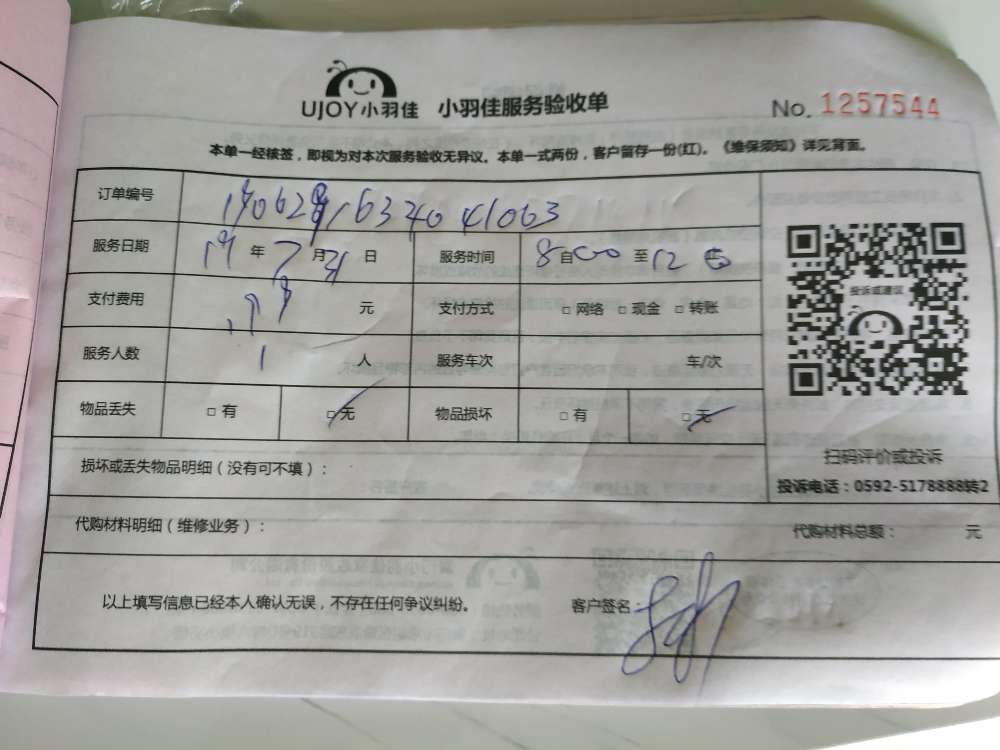 UJOY小羽佳 小羽佳服务验收单 No. 1257544
本单一经核签，即视为对本次服务验收无异议。本单一式两份，客户留存一份(红)。《维保须知》详见背面。
订单编号
服务日期 19 年 7 月 31 日 服务时间 8 自 00 至 12
支付费用 元 支付方式 □ 网络 □ 现金 □ 转账
服务人数 1 人 服务车次 车/次
物品丢失 □ 有 □ 无 物品损坏 □ 有 □ 无
投诉或建议
扫码评价或投诉
投诉电话：0592-5178888转2
损坏或丢失物品明细（没有可不填）：
代购材料明细（维修业务）： 代购材料总额： 元
以上填写信息已经本人确认无误，不存在任何争议纠纷。 客户签名：